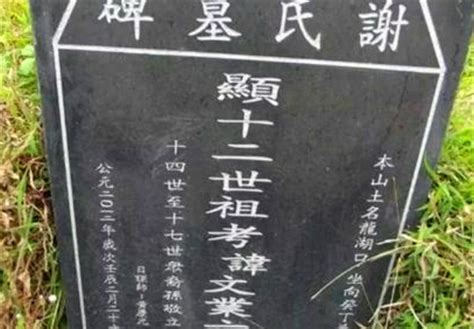 謝氏墓碑
本山土名龍湖口坐向癸丁
顯十二世祖考諱文業
十四世至十七世眾裔孫敬立
日課師:黃
公元二〇一二年歲次壬辰二月二十